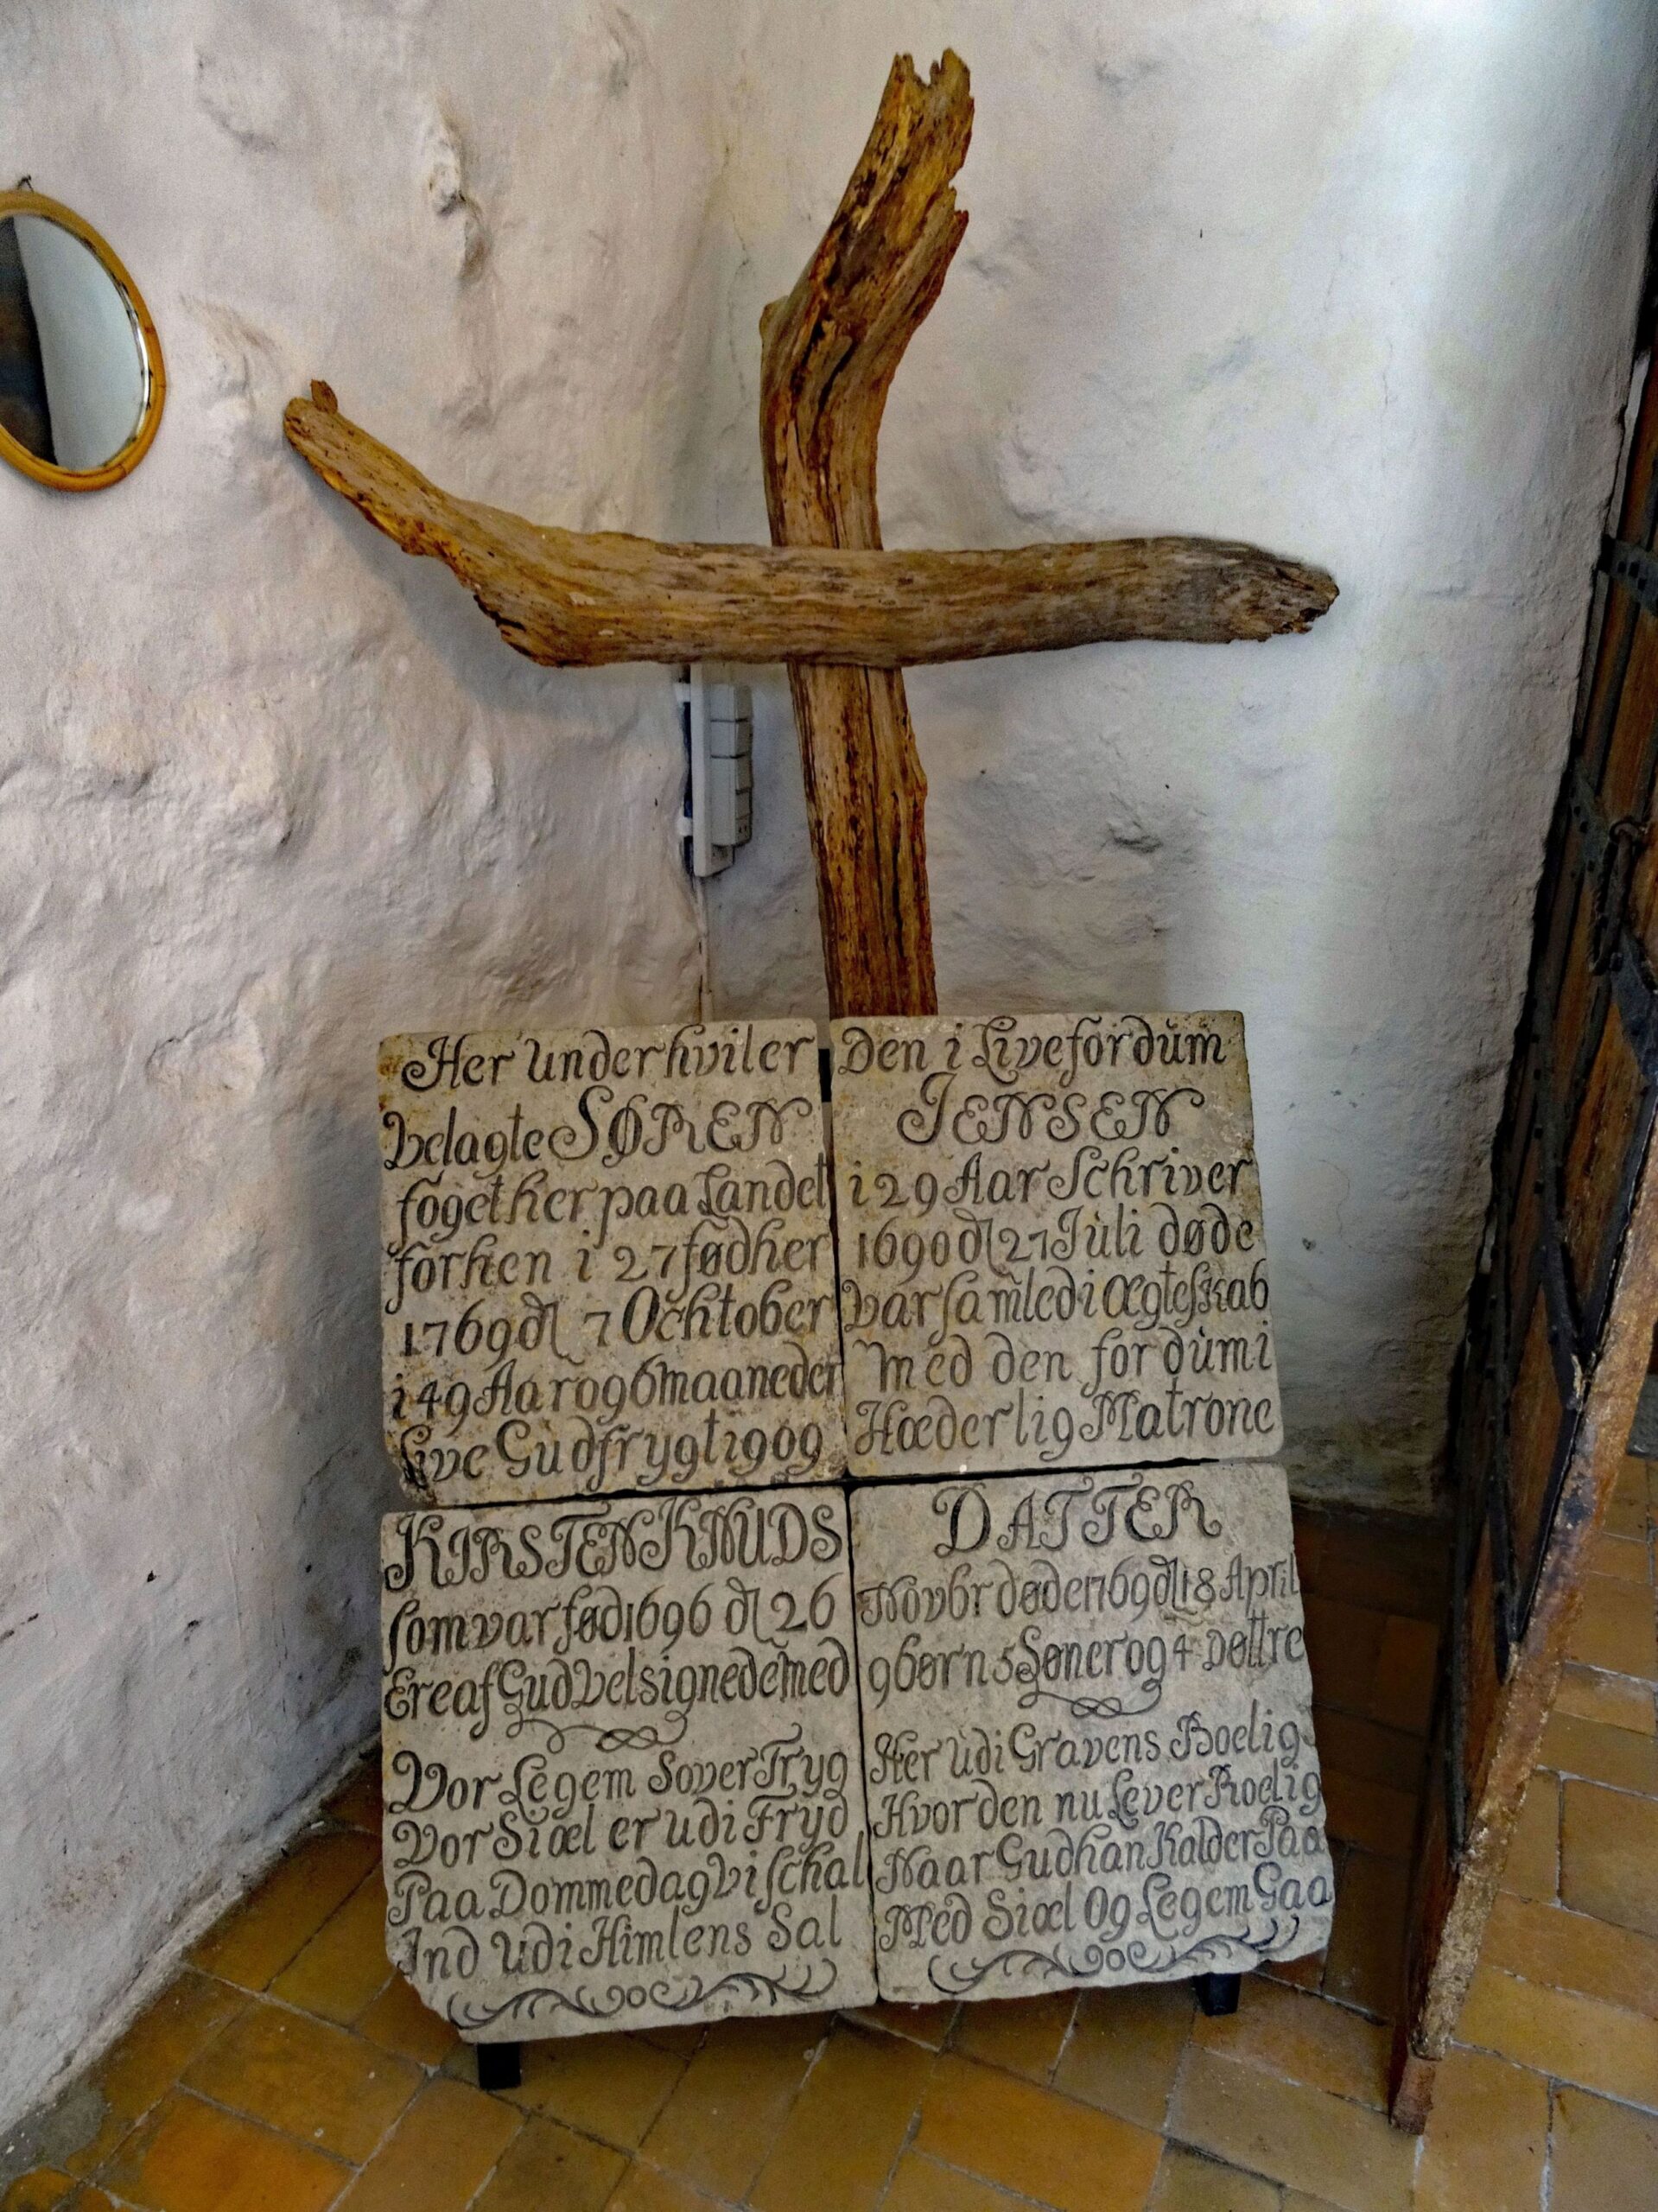 Her Under hviler Den i Live fordum
Velagte SØREN JENSEN
foget her paa Landet i 29 Aar Schriver
forhen i 27 fød her 1690 dl 27 Juli døde
1769 dl 7 Ochtober Var samled i Ægteskab
i 49 Aar og 6 maaneder med den fordum i
Live Gudfrygtig og Hæderlig Matrone
KIRSTEN KNUDS DATTER
som var fød 1696 dl 26 Novbr døde 1769 dl 18 April
Ere af Gud Velsignede med 9 børn 5 Søner og 4 Døttre
Vor Legem Sover Tryg Her udi Gravens Boelig
Vor Siæl er udi Fryd Hvor den nu Lever Roelig
Paa Dommedag Vi schal Naar Gud han Kalder Paa
Ind udi Himlens Sal Med Siæl Og Legem Gaa